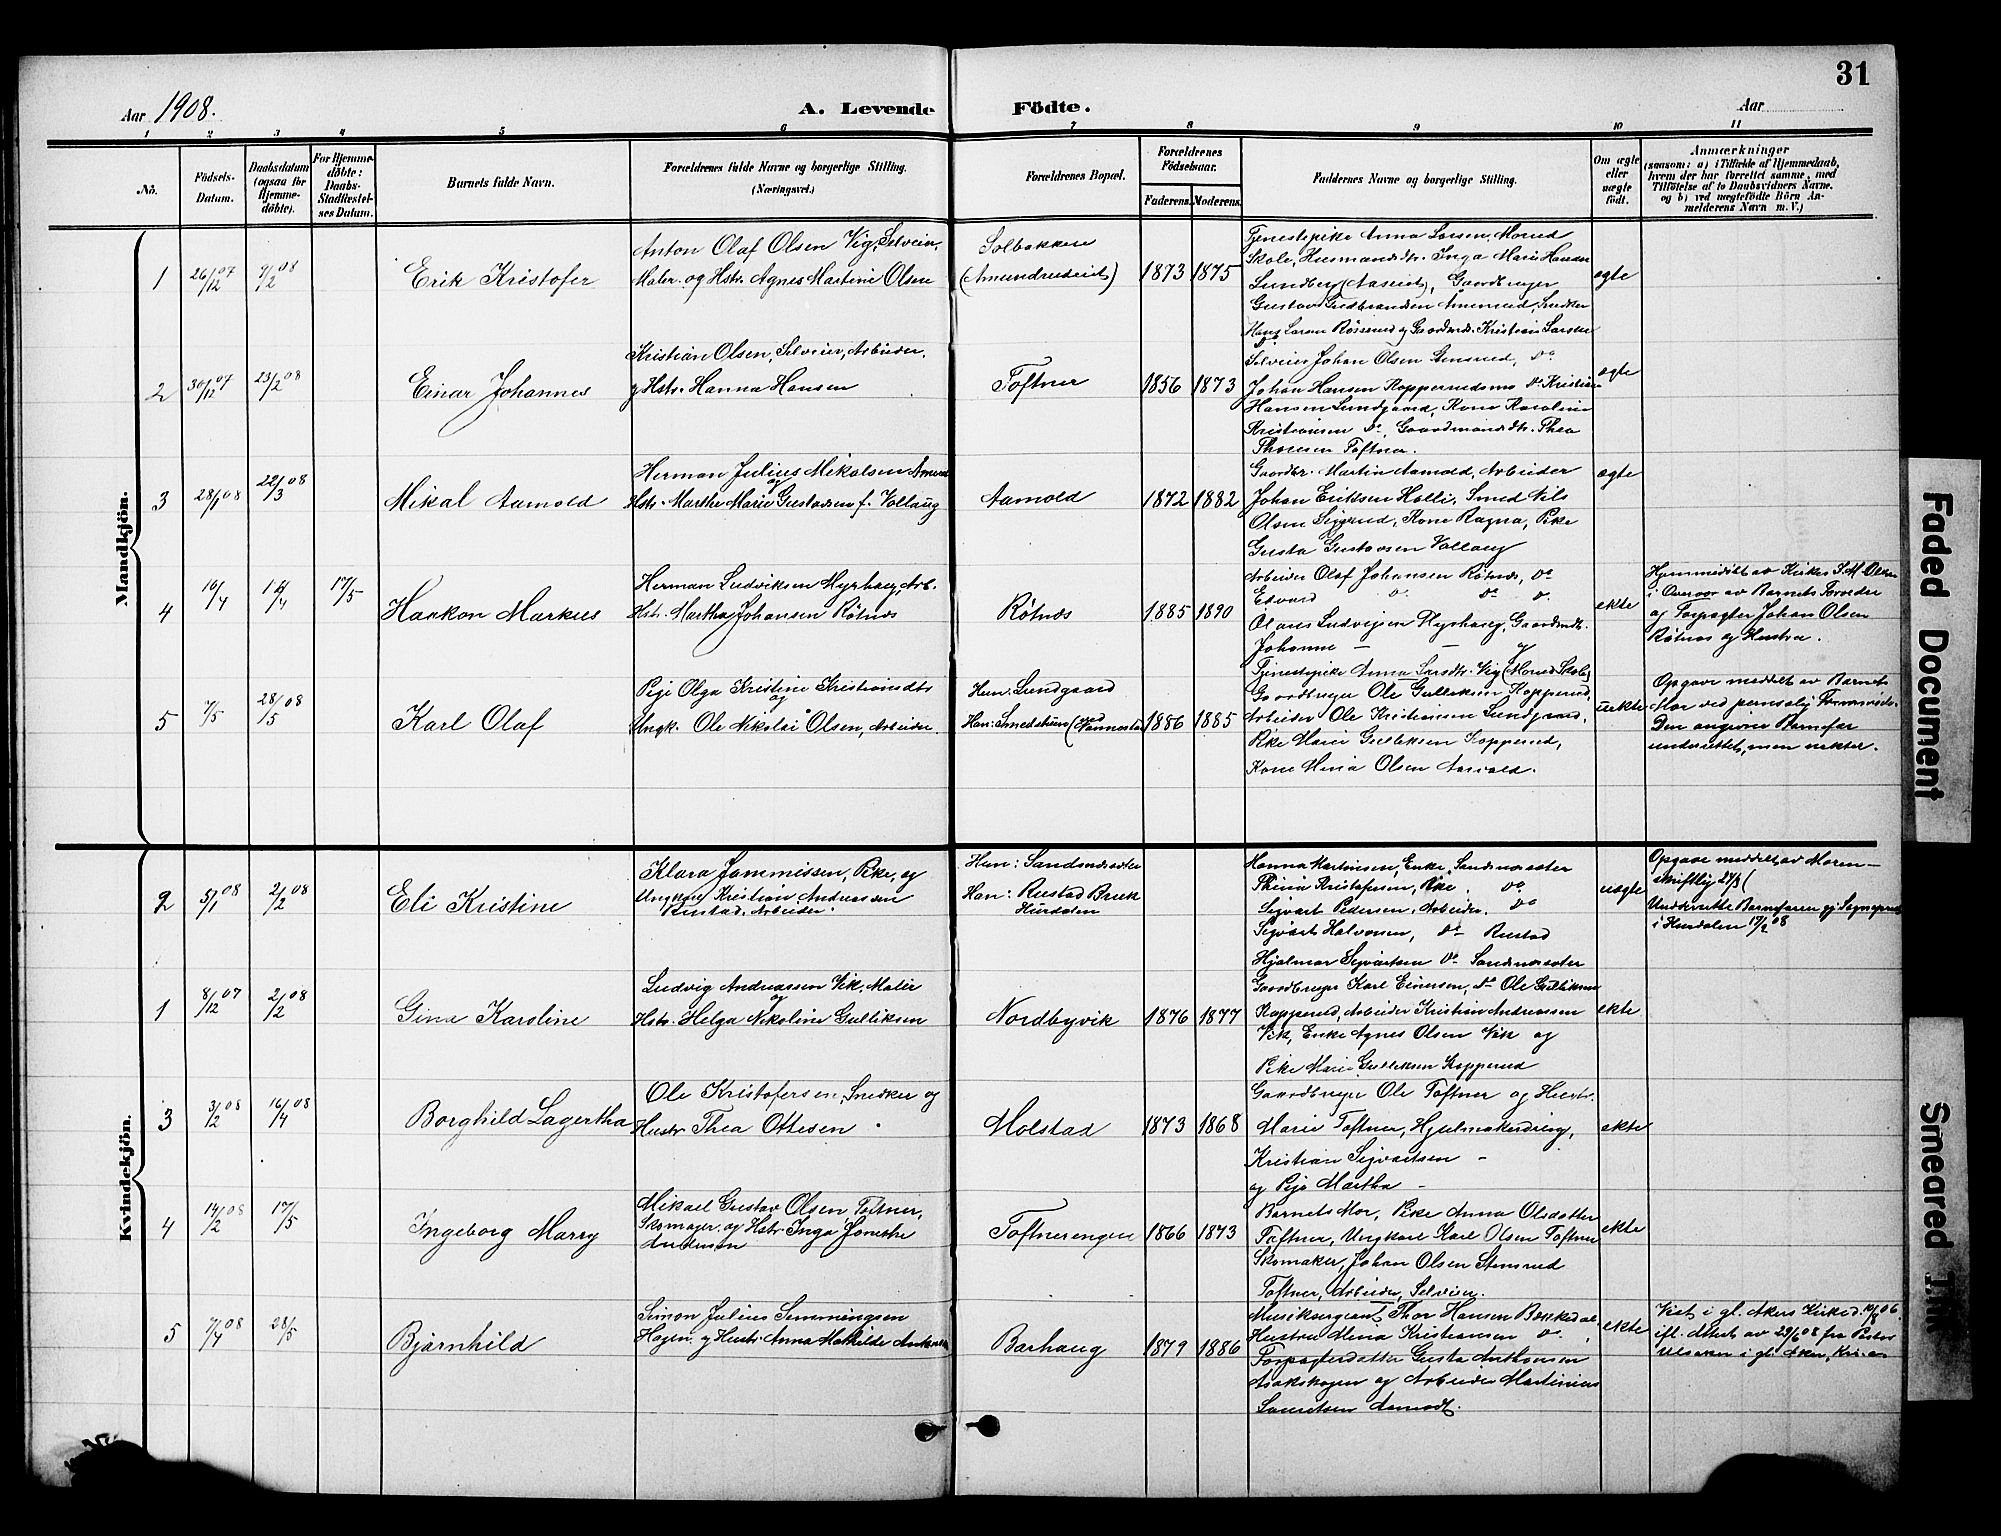 31
Aar 1908. A. Levende Födte. Aar
1 2 3 4 5 6 7 8 9 10 11
No. Födsels-Datum. Daabsdatum (ogsaa for Hjemme-döbte). For Hjemme-döbte: Daabs-Stadfæstel-ses Datum. Barnets fulde Navn. Forældrenes fulde Navne og borgerlige Stilling. (Næringsvei.) Forældrenes Bopæl. Forældrenes Födselsaar. Faderens. Moderens. Faddernes Navne og borgerlige Stilling. Om ægte eller uægte födt. Anmærkninger (saasom: a) i Tilfælde af Hjemmedaab, hvem der har forrettet samme, med Tilföielse af to Daabsvidners Navne. og b) ved uægtefödte Börn An-melderens Navn m. V.)
Mandkjön.
1 26/12 07 9/2 08 Erik Kristofer
Anton Olaf Olsen Vig, Selveier,
Maler. og Hstr. Agnes Martine Olsen
Solbakken
(Amundrudeiet)
1873 1875
Tjenestepike Anna Larsen, Morud
Skole, Husmandsdtr. Inga Marie Hansen
Lundby (Aaseiet), Gaardbruger
Gustav Gudbrandsen Amerud, Snedker
Hans Larsen Røsserud og Gaardmds. Kristian Larsen
ægte
2 30/12 07 23/2 08 Einar Johannes
Kristian Olsen, Selveier, Arbeider,
og Hstr. Hanna Hansen
Toftner
1856 1873
Selveier Johan Olsen Stensrud, Do
Johan Hansen Kopperudsmo Do Kristian
Hansen Lundgaard, Kone Karoline
Kristiansen Do, Gaardmandsdtr. Thea
Thoresen Toftner.
ægte
3 28/1 08 22/3 08 Mikal Aamold
Herman Julius Mikalsen
og
Hstr. Marthe Marie Gustavsen f. Vollaug
Aamold
1872 1882
Gaardbr. Martin Aamold, Arbeider
Johan Eriksen Holli, Smed Nils
Olsen Sigerud, Kone Ragna, Pike
Gusta Gustavsen Vollaug
ægte
4 16/4 17/5 Haakon Markus
Herman Ludviksen Myrhaug, Arb.
Hstr. Martha Johansen Røtnes
Røtnes
1885 1890
Arbeider Olaf Johansen Røtnes, Do
Edvard Do Do Do
Olaves Ludvigsen Myrhaug, Gaardmdtr.
Johanne — — og
ekte
Hjemmedøbt av Kirkes. I. M. Olsen
i Overvær av Barnets Foreldre
og Forpagter Johan Olsen
Røtnes og Hustru.
5 7/5 28/5 08 Karl Olaf
Pige Olga Kristine Kristiansdtr
og
Ungk. Ole Nikolai Olsen, Arbeider.
Hun: Lundgaard
Han: Smedstuen (ved Nannestad
1886 1885
Tjenestepike Anna Larsdtr. Vig (Morud Skole)
Gaardbruger Ole Gulliksen Kopperud,
Arbeider Ole Kristiansen Lundgaard,
Pike Marie Gulliksen Kopperud,
Kone Mina Olsen Aasvold.
uekte
Opgave meddelt av Barnets
Mor ved personlig
Den angivne Barnefar
underrettet, men nekter.
Kvindekjön.
2 5/1 08 2/2 08 Eli Kristine
Klara Jammissen, Pike, og
Ungkar Kristian Andreassen
Rustad, Arbeider.
Hun: Sandsnæsseter
Han: Rustad Bruk
Hurdalen
Hanna Martinsen, Enke, Sandsnæsseter
Thina Kristofersen, Pike. Do
Sigvart Pedersen, Arbeider. Do
Sigvart Halvorsen, Do Rustad
Hjalmar Sigvartsen Do Sandsnæsseter
uægte
Opgave meddelt av Moren —
skriftlig
Underrettet Barnefaren gj. Sogneprest
i Hurdalen 17/2 08
1 8/12 07 2/2 08 Gina Karoline
Ludvig Andreassen Vik, Maler
og
Hstr. Helga Nikoline Gulliksen
Nordbyvik
1876 1877
Gaardbruger Karl Einersen, Do Ole Gulliksen
Kopperud, Arbeider Kristian Andreassen
Vik, Enke Agnes Olsen Vik og
Pike Marie Gulliksen Kopperud
ekte
3 3/2 08 16/4 08 Borghild Lagertha
Ole Kristofersen, Snedker og
Hustr Thea Ottesen
Molstad
1873 1868
Gaardbruger Ole Toftner og Hustr.
Marie Toftner, Hjulmakerdreng,
Kristian Sigvartsen —
og Pige Martha —
ekte
4 14/2 08 17/5 Ingeborg Marry
Mikael Gustav Olsen Toftner,
Skomager, og Hstr. Inga Jonette
Andersen
Toftnerengen
1866 1873
Barnets Mor, Pike Anna Olsdatter
Toftner, Ungkarl Karl Olsen Toftner
Skomaker, Johan Olsen Stensrud
Toftner, Arbeider, Selveier.
ekte
5 7/4 08 28/5 Bjarnhild
Simon Julius Simmingsen
Hagen og Hustr. Anna Mathilde
Barhaug
1879 1886
Musiksergeant Thor Hansen Bækkedal,
Hustru Alma Kristiansen Do,
Forpagterdatter Gusta Anthonsen
Asakskogen og Arbeider Martinius
Lauritsen Aamodt.
ekte
Viet i gl. Akers Kirke d. 19/8 06.
ifl. Attest av 29/6 08 fra Pastor
i gl. Aker, Kr.a
Faded Document
Smeared Ink